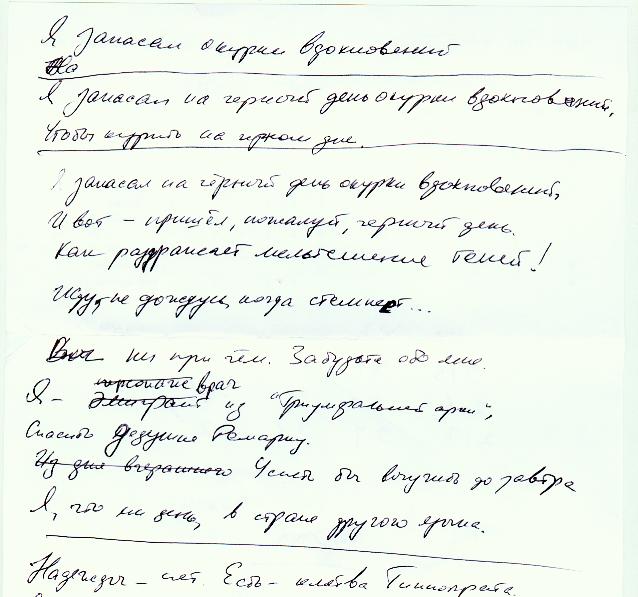 Я запасал окурки вдохновений
На
Я запасал на черный день окурки вдохновений,
Чтобы курить на черном дне.
Я запасал на чёрный день окурки вдохновений,
И вот – пришёл, пожалуй, черный день.
Как раздражает мельтешение теней!
Жду, не дождусь, когда стемнеет...
ни при чём. Забудьте обо мне.
персонаж врач
Я – эмигрант из "Триумфальной арки",
Спасибо дедушке Ремарку.
Из дня вчерашнего Успеть бы выучить до завтра
Я, что ни день, в стране другого языка.
Надежды – нет. Есть – клятва Гиппократа.